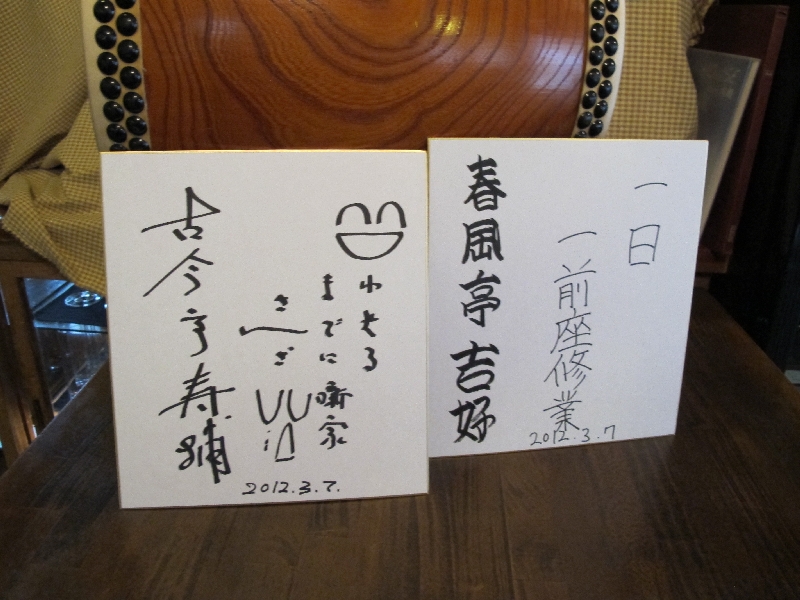 一日
一前座修業
春風亭吉好
2012.3.7
わせる
までに噺家
さんざ
古今亭寿輔
2012.3.7.